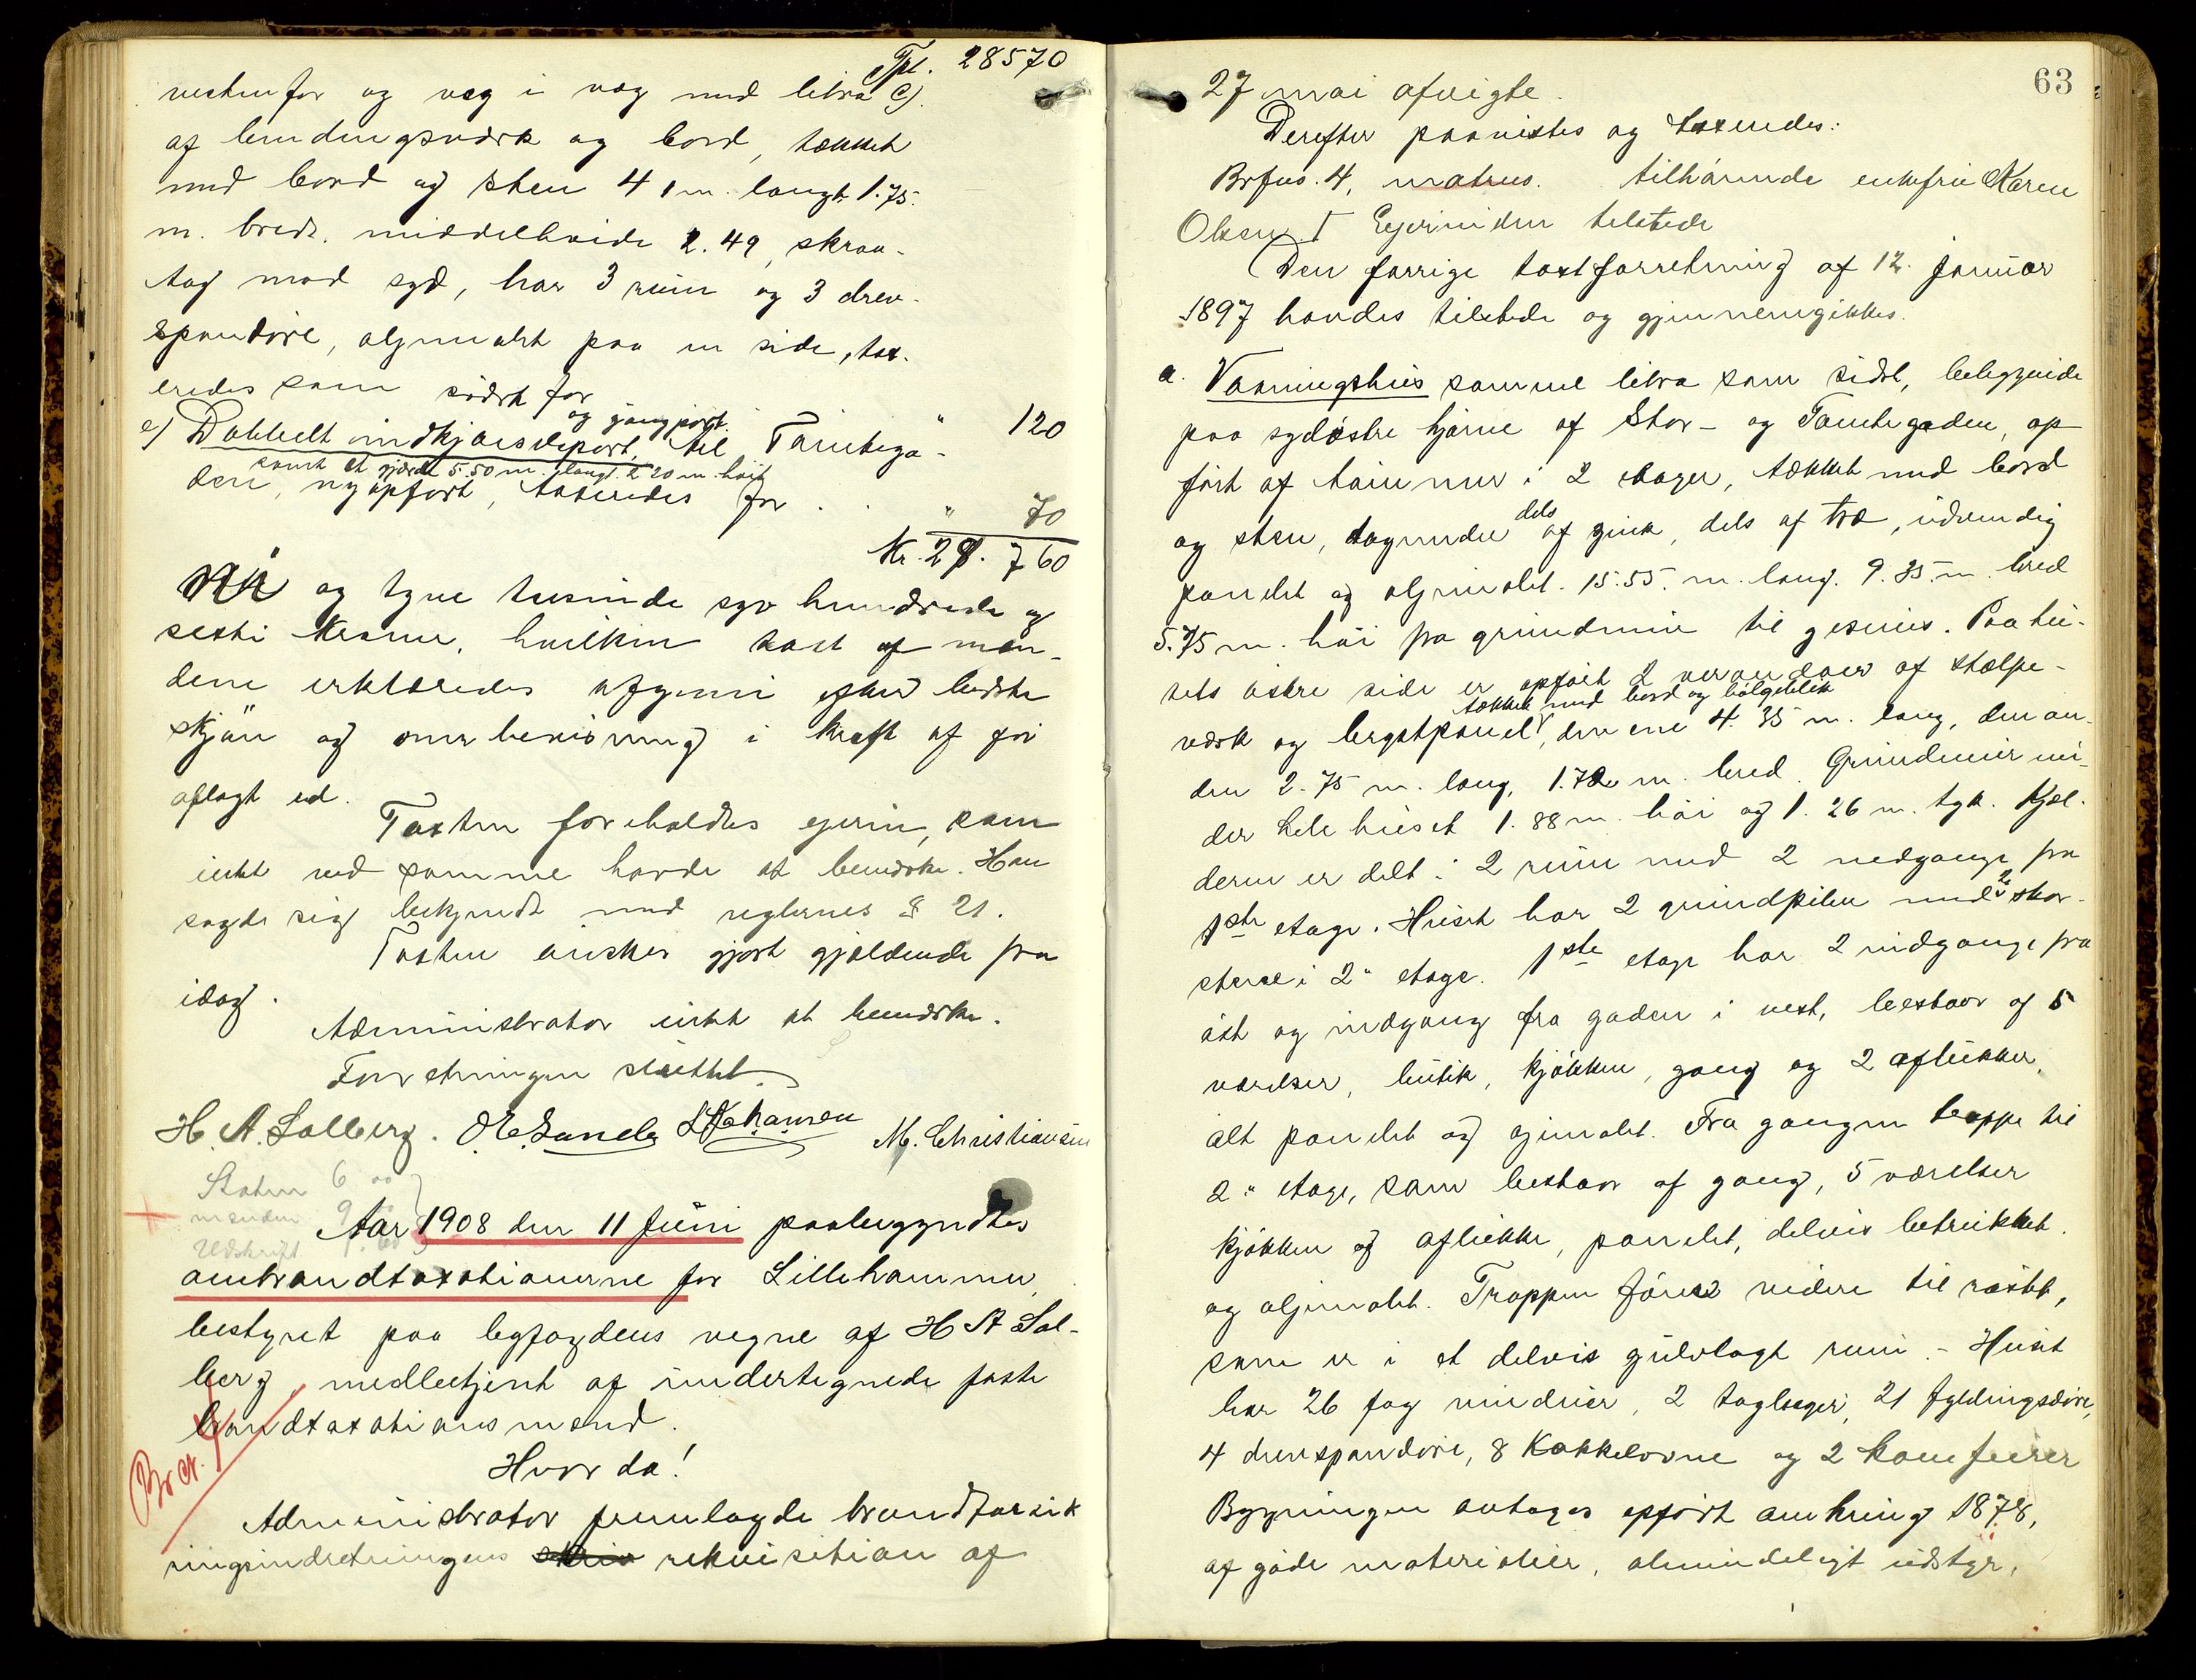 Tpt. 28570
vestenfor og væg i væg med litra c).
af bindingsværk og bord, tækket
med bord og sten 4 1 m. langt 1.75.
m. bredt. middelhøide 2.49, skraa-
tag mod syd, har 3 rum og 3 drev-
spandøre, oljemalt paa en side, tax-
eredes som sidst for " 120
og gangport.
e) Dobbelt indkjørselsport, til Tomtega-
samt et gjærde 5.50 m. langt. 2.20 m. høit
den, ny opført, taxeredes for . . " 70
Kr. 28. 760
Ni og tyve tusinde syv hundrede og
sexti Kroner, hvilken taxt af mæn-
dene erklæredes afgivni efter bedste
skjøn og overbevisning i kraft af før
aflagt ed.
Taxten foreholdtes eieren, som
intet ved samme havde at bemærke. Han
sagde sig bekjendt med reglernes § 21.
Taxten ønskes gjort gjældende fra
idag.
Administrator intet at bemærke.
Forretningen sluttet.
H. A. Solberg. O. E. Sunde L. Johansen M. Christiansen
Staten 6 00
mænden 9
Udskrift 1.60
Aar 1908 den 11 Juni paabegyndtes
ombrandtaxationerne for Lillehammer,
bestyret paa byfogdens vegne af H A Sol-
berg, medbetjent af undertegnede faste
brandtaxationsmænd.
Hvorda!
Br Nr. 4
Administrator fremlagde brandforsik
ringsindretningens skriv rekvisition af
63
27 mai afvigte.
Derefter paavistes og taxerides:
Brfns. 4, matrns. tilhørende enkefru Karen
Olsen. Eyerinden tilstede
Den forrige taxtforretning af 12. januar
1897 havdes tilstede og gjennemgikkes.
a. Vaaningshus samme litra som sidst, beliggende
paa sydøstre hjørne af Stor- og Tomtegaden, op-
ført af tømmer i 2 etager, tækket med bord
og sten, tagrender dels af zink, dels af træ, udvendig
panelet og oljemalet. 15.55. m. lang. 9.35. m. bred
5.75 m. høi fra grundmur til gesims. Paa hu-
sets østre side er opført 2 verandaer af stolpe-
tækket med bord og bølgeblik
værk og brystpanel, den ene 4.35 m. lang, den an-
den 2.75 m. lang, 1.72 m. bred. Grundmur un-
der hele huset 1.88 m. høi og 1.26 m. tyk. Kjæl-
deren er delt i 2 rum med 2 nedgange fra
1ste etage. Huset har 2 grundpiber med 2 skor-
stene i 2" etage. 1ste etage har 2 indgange fra
øst og indgang fra gaden i vest, bestaar af 5
værelser, butik, kjøkken, gang og 2 aflukker,
alt panelet og ojemalet. Fra gangen trappe til
2" etage, som bestaar af gang, 5 værelser
kjøkken og aflukke, panelet, delvis betrukket.
og oljemalet. Trappen føres videre til røstet,
som er i et delvis gulvlagt rum. – Huset
har 26 fag vinduer, 2 tagluger, 21 fyldingsdøre,
4 drevspandøre, 8 Kakkelovne og 2 komfurer
Bygningen antages opført omkring 1878,
af gode materialier, almindeligt udstyr,